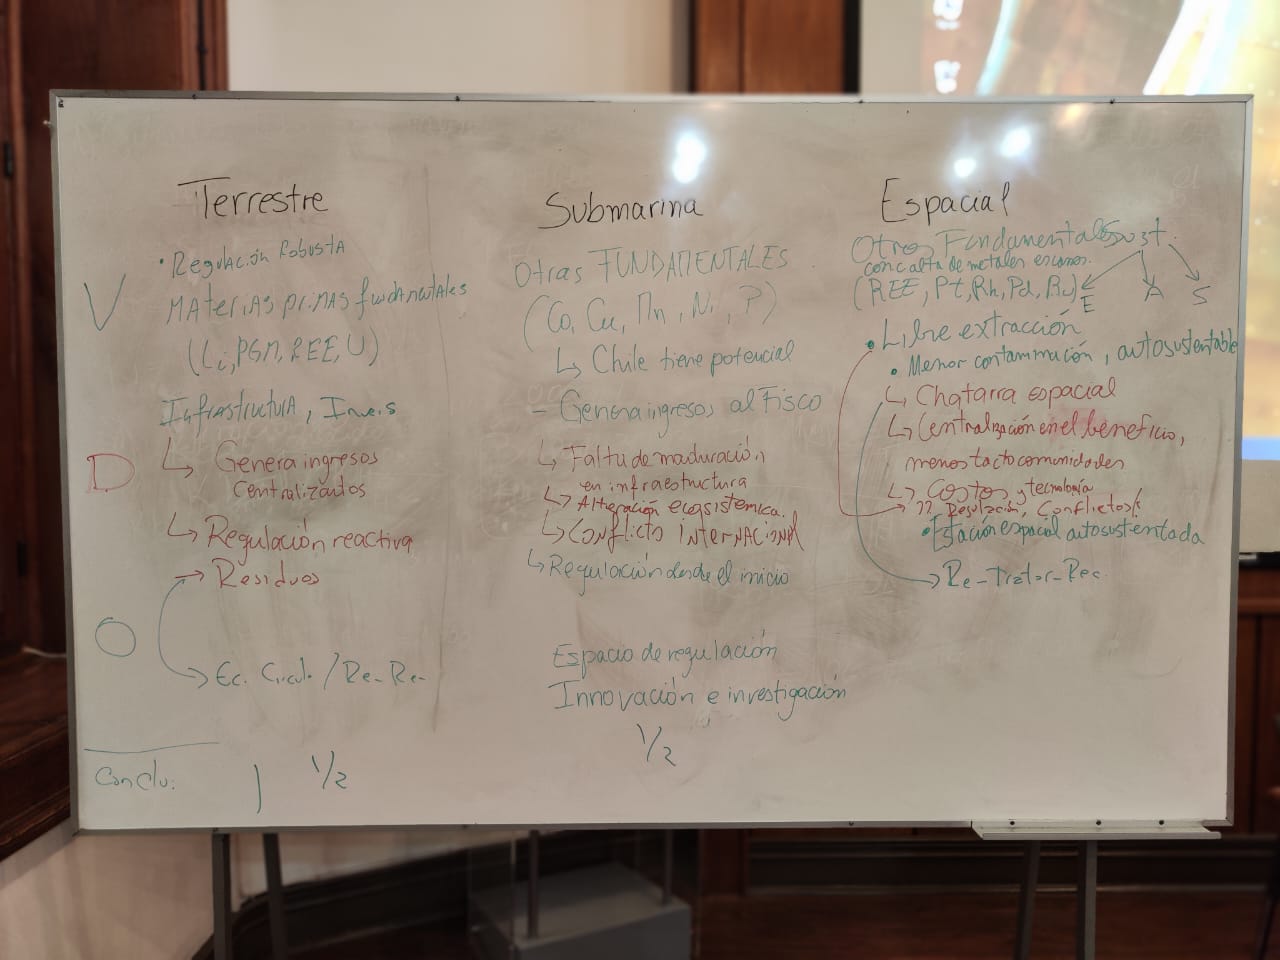 Terrestre
V
• Regulación Robusta
Materias primas fundamentales
(Li, PGM, REE, U)
Infraestructura, Inves
D
↳ Genera ingresos
Centralizados
↳ Regulación reactiva
→ Residuos
O
→ Ec. Circulo / Re- Re-
Conclu:
1/2
Submarina
Otras FUNDAMENTALES
(Co, Cu, Mn, Ni, P)
↳ Chile tiene potencial
- Genera ingresos al Fisco
↳ Falta de maduración
en infraestructura
↳ Alteración ecosistemica.
↳ Conflicto internacional
↳ Regulación desde el inicio
Espacio de regulación
Innovación e investigación
1/2
Espacial
Otros Fundamentales
con calta de metales escasos.
(REE, Pt, Rh, Pd, Ru)
Sust.
E A S
• Libre extracción
• Menor contaminación, autosustentable
↳ Chatarra espacial
↳ Centralización en el beneficio,
menos tacto comunidades
↳ Costos y tecnología
→ ?? Regulación, Conflictos
• Estación espacial autosustentada
→ Re-Tratar-Rec.